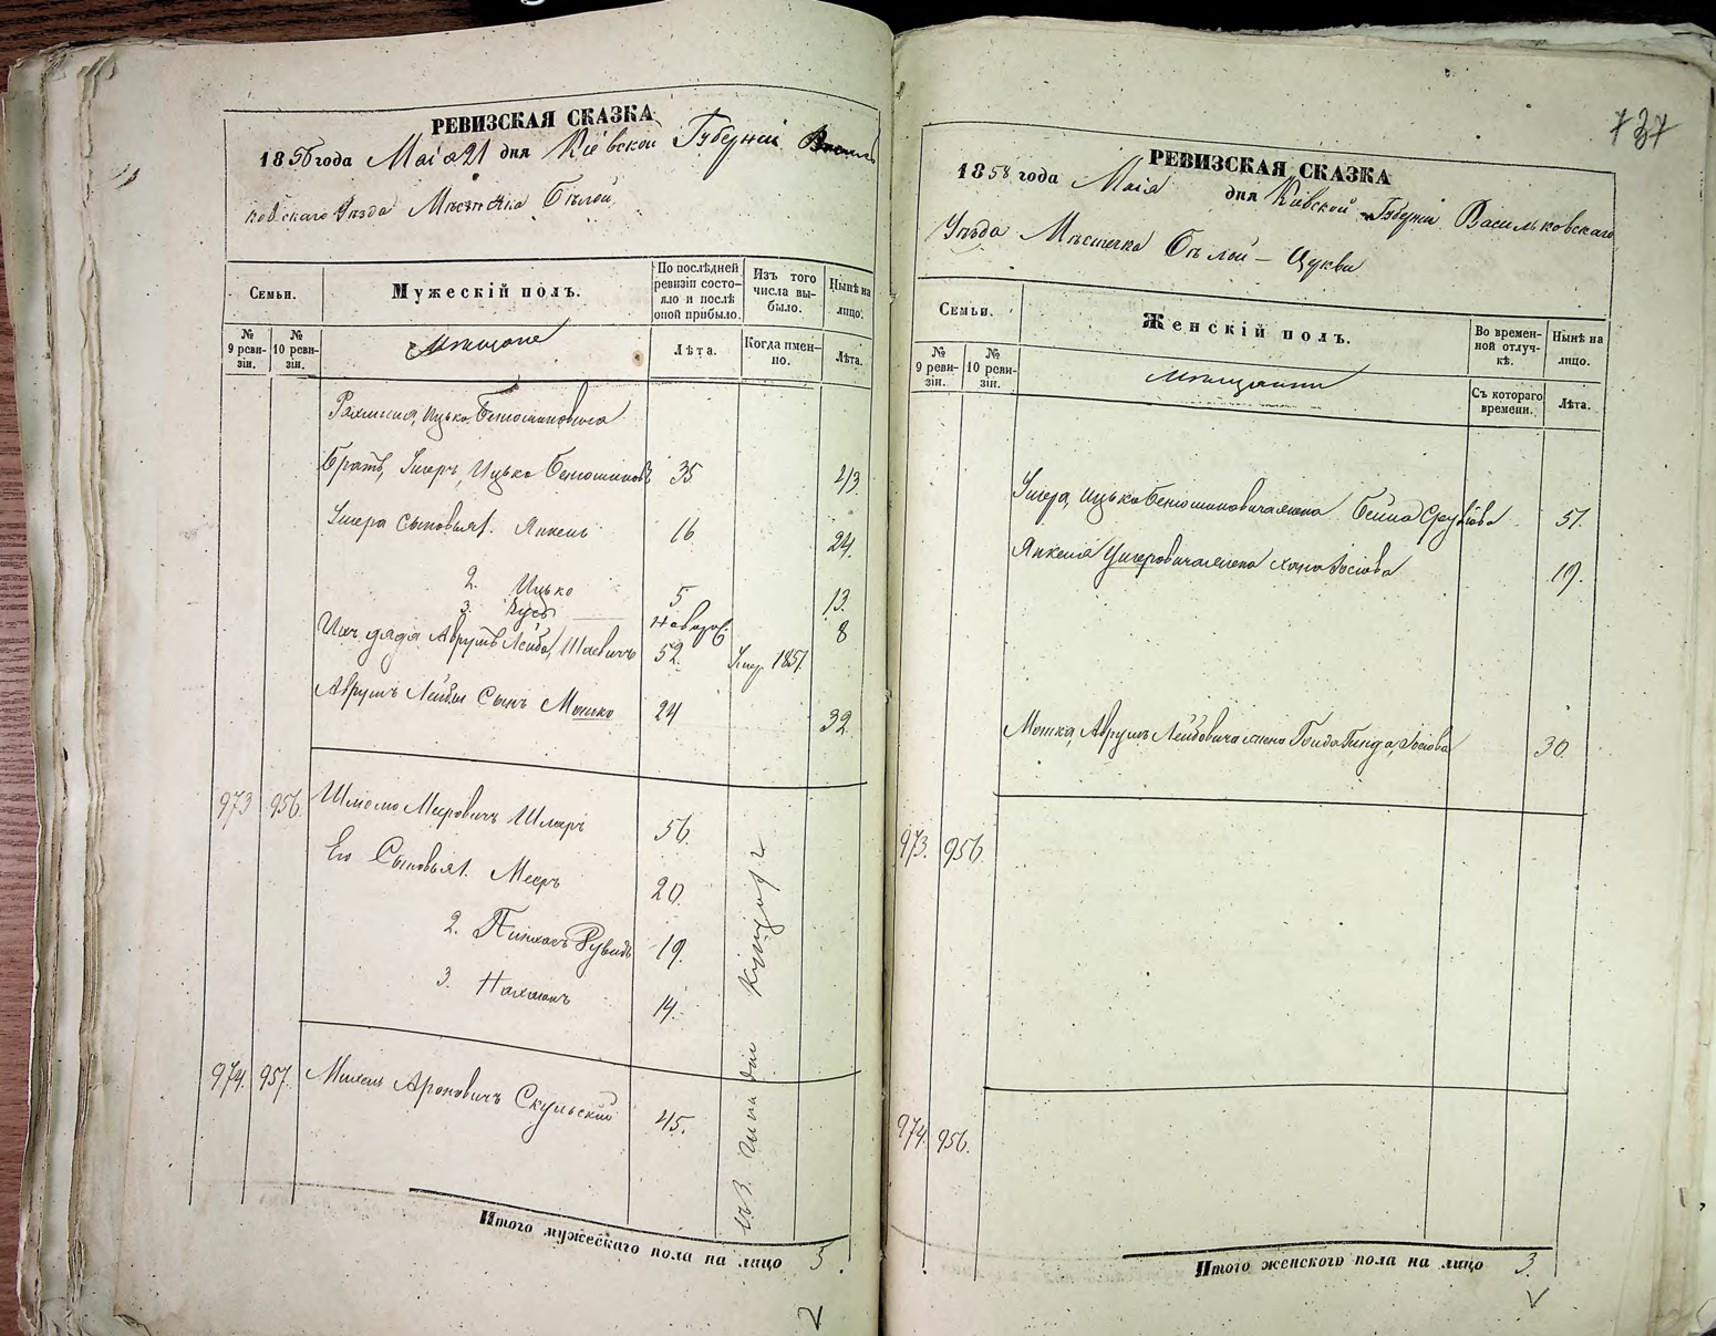 РЕВИЗСКАЯ СКАЗКА
1858 года Маія 21 дня Кіевской Губерніи Василь
ковскаго Уѣзда Мѣстечка Бѣлой
Семьи.
Мужескій полъ.
По послѣдней ревизіи состояло и послѣ оной прибыло.
Изъ того числа выбыло.
Нынѣ на лицо.
№ 9 ревизіи.
№ 10 ревизіи.
Мѣщане
Лѣта.
Когда именно.
Лѣта.
Ицько Беніоминовича
Братъ, Ушеръ, Ицько Беніоминовъ 35 43.
Ушера Сыновья 1. Янкель 16 24.
2. Ицько 5 13.
3. 8
дядя Аврумъ Лейба 52. Умер. 1851.
Аврумъ Лейбы Сынъ Мошко 24 32.
973 956. Шлемо Мееровичъ 56.
Его Сыновья 1. Мееръ 20.
2. Пинхасъ Рувинъ 19.
3. Нахманъ 14.
974. 957. Ароновичъ Скульскій 45.
Итого мужескаго пола на лицо 5.
2
737
РЕВИЗСКАЯ СКАЗКА
1858 года Маія дня Кіевской Губерніи Васильковскаго
Уѣзда Мѣстечка Бѣлой-Церкви
Семьи.
Женскій полъ.
Во временной отлучкѣ.
Нынѣ на лицо.
№ 9 ревизіи.
№ 10 ревизіи.
Мѣщанки
Съ котораго времени.
Лѣта.
Ушера, Ицько Беніоминовича жена Бейла 51.
Янкеля Ушеровича жена Хана Іосіова 19.
Мошка, Аврумъ Лейбовича жена Гинда, Іосіова 30.
973. 956.
974. 956.
Итого женскаго пола на лицо 3.